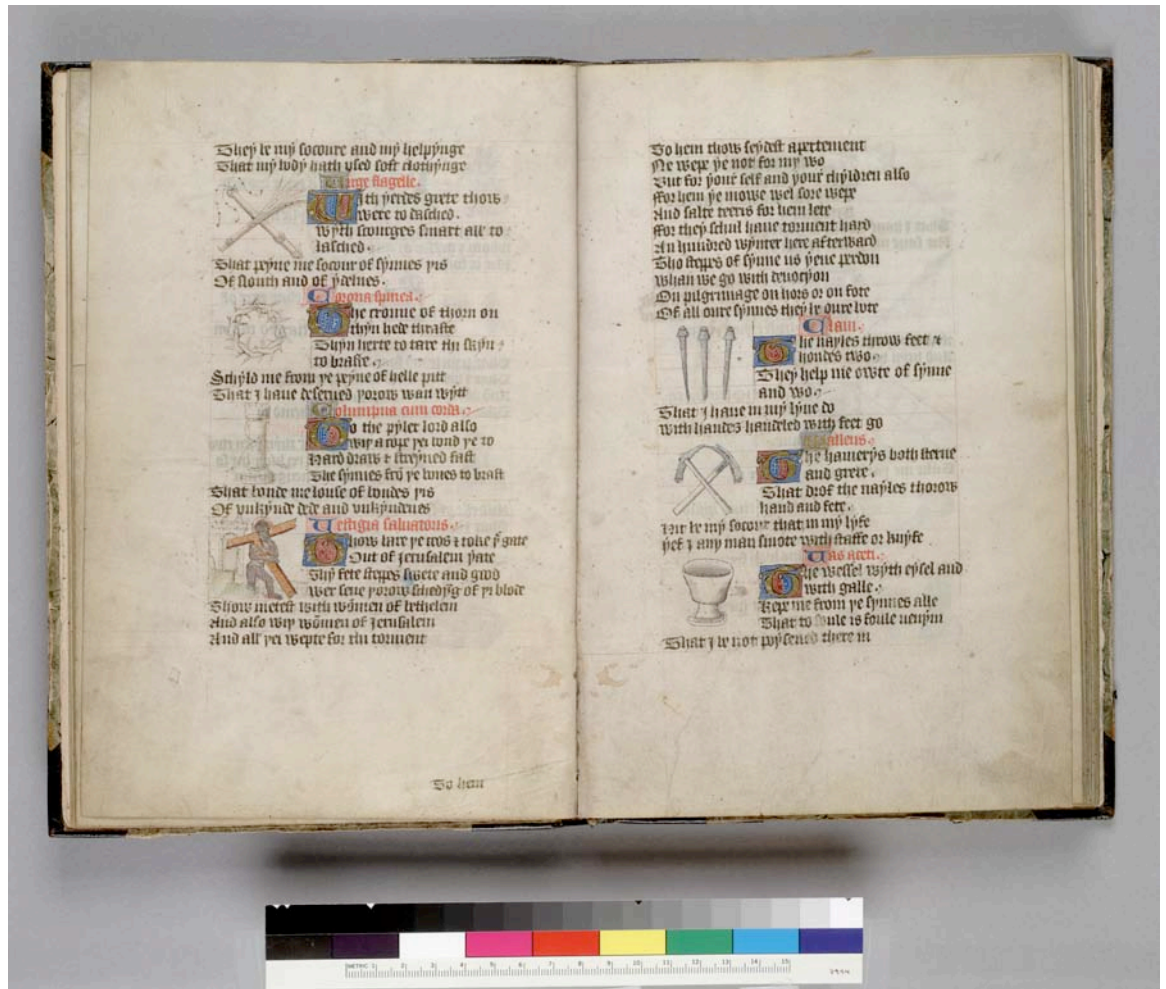 They be my socoure and my helpynge
That my body hath used soft clothynge
Virge flagelle.
With yerdes grete thow
were to dasched.
wyth scourges smart all to
lasched.
That peyne me socour of synnes yis
Of slouth and of ydelnes.
Corona spinea.
The croune of thorn on
thyn hede thraste
Thyn herte to tare thi skyn
to braste.
Schyld me from ye peyne of helle pitt
That I have deserued yorow wan wytt
Columpna cum corda.
To the pyler lord also
wiy a rope yei bond ye to
Hard draw & streyned fast
The synnes fro ye bones to brast
That bonde me louse of bondes yis
Of unkynde dede and unkyndenes
Uestigia saluatoris.
Thow bare ye cros & toke ye gate
Out of Jerusalem yate
Thy fete steppes swete and good
wer sene yorow schedyg of yi blode
Thow metest with women of bethelem
And also wiy women of Jerusalem
And all yei wepte for thi torment
To hem
To hem thow seydest apertement
Ne wepe ye not for my wo
But for your self and your chyldren also
ffor hem ye mowe wel sore wepe
And salte teeris for hem lete
ffor they schul haue torment hard
An hundred wynter here afterward
Tho steppes of synne us yeue perdon
whan we go with deuocyon
On pilgrimage on hors or on fote
Of all oure synnes they be oure bote
Claui.
The nayles throw feet &
hondes two
They help me owte of synne
and wo
That I haue in my lyue do
with handes handeled with feet go
Malleus.
The hamerys both sterne
and grete.
That drof the nayles thorow
hand and fete.
Hit be my socour that in my lyfe
yef I any man smote with staffe or knyfe
Uas aceti.
The wessel wyth eysel and
with galle.
Kepe me from ye synnes alle
That to soule is foule uenym
That I be not poysened there in
2944